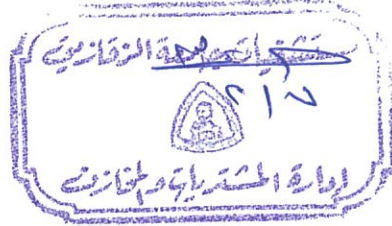 مستشفيات جامعة الزقازيق
٢١٧
إدارة المشتريات والمخازن